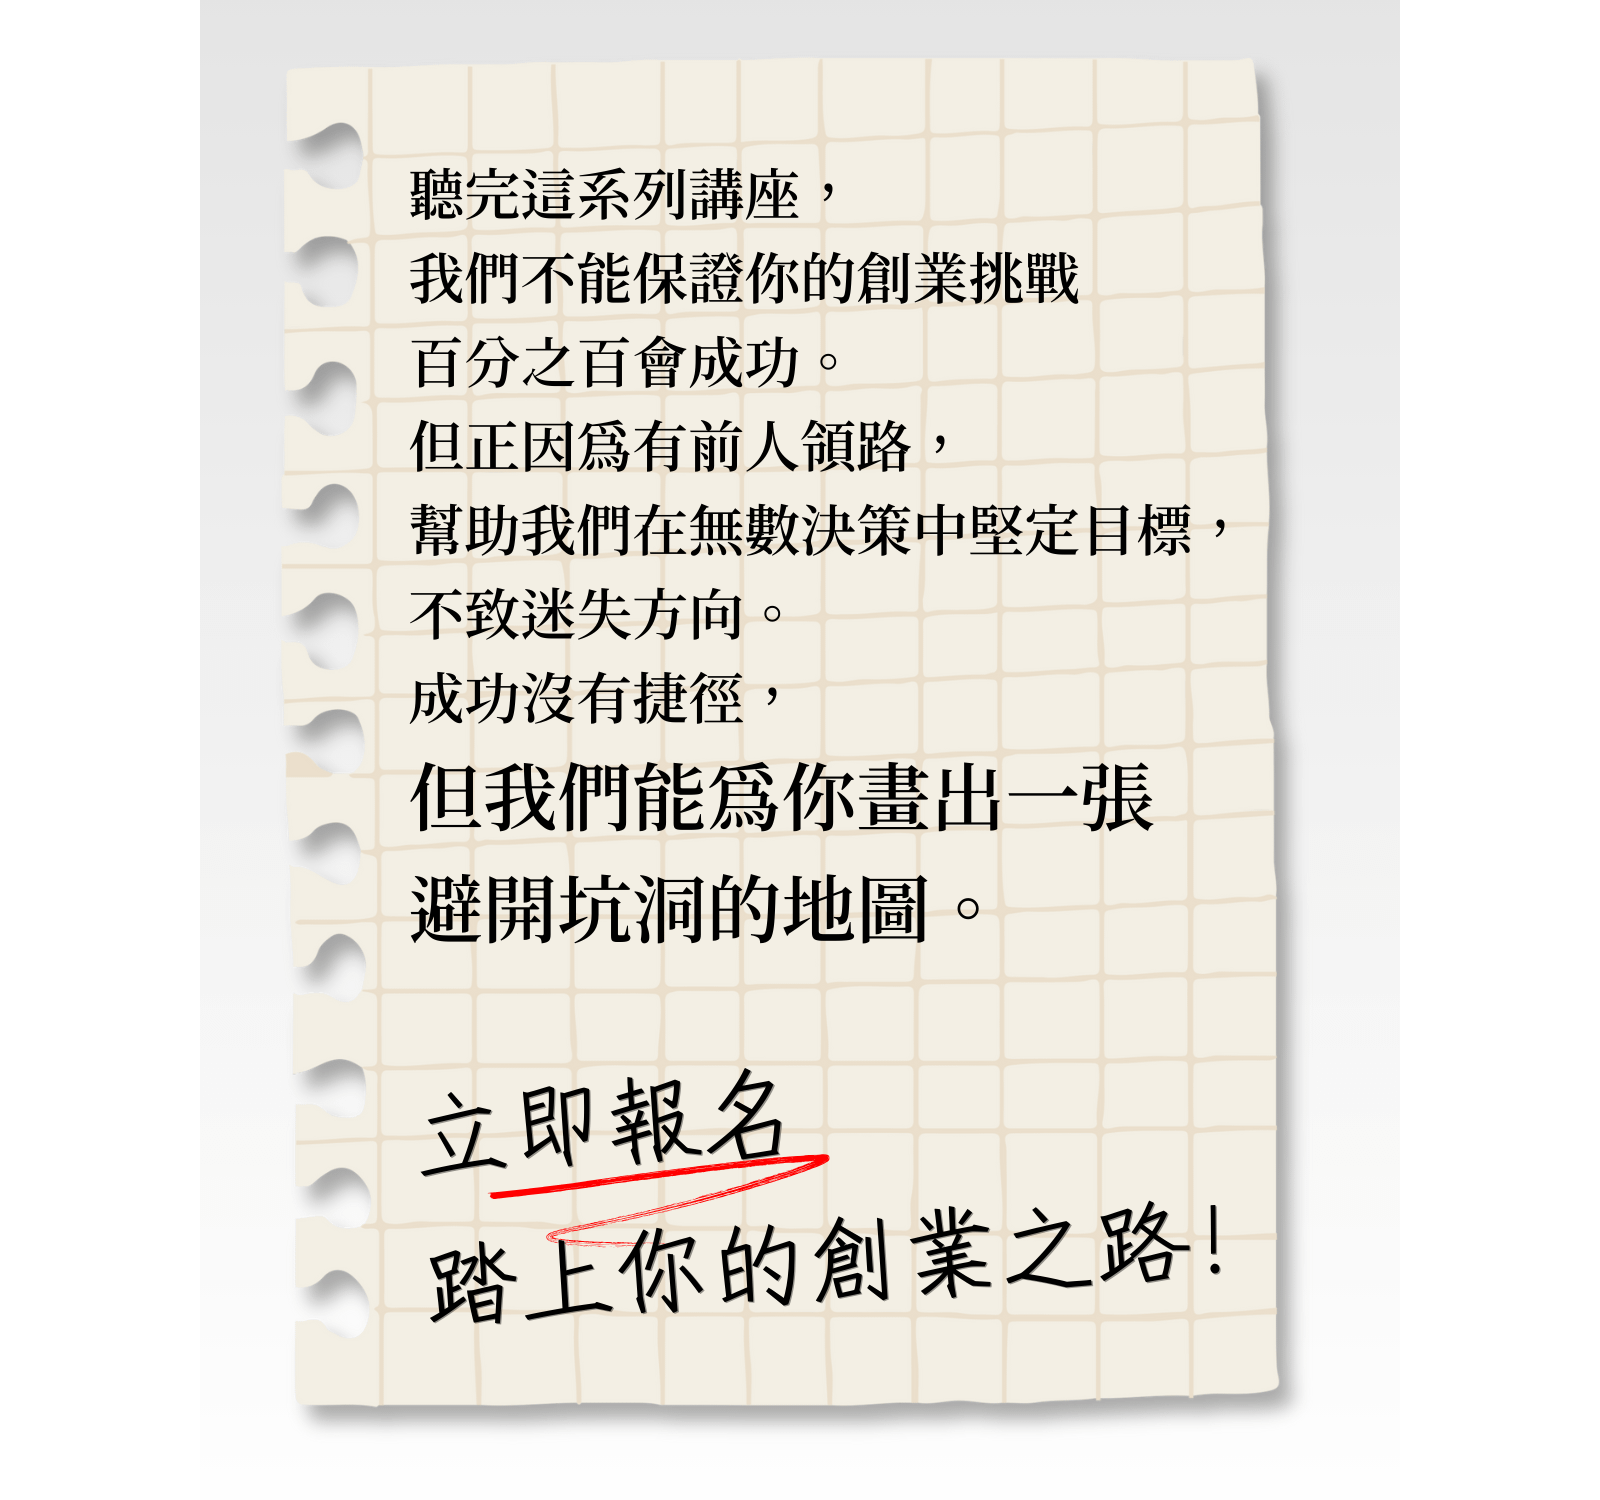 聽完這系列講座，
我們不能保證你的創業挑戰
百分之百會成功。
但正因爲有前人領路，
幫助我們在無數決策中堅定目標，
不致迷失方向。
成功沒有捷徑，
但我們能爲你畫出一張
避開坑洞的地圖。
立即報名
踏上你的創業之路！